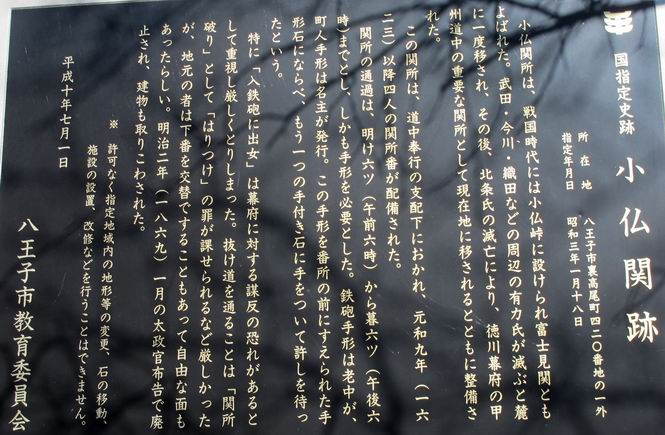 国指定史跡 小仏関跡
所在地 八王子市裏高尾町四二〇番地の一外
指定年月日 昭和三年一月十八日
小仏関所は、戦国時代には小仏峠に設けられ富士見関とも
よばれた。武田・今川・織田などの周辺の有力氏が滅ぶと麓
に一度移され、その後、北条氏の滅亡により、徳川幕府の甲
州道中の重要な関所として現在地に移されるとともに整備さ
れた。
この関所は、道中奉行の支配下におかれ、元和九年(一六
二三)以降四人の関所番が配備された。
関所の通過は、明け六ツ(午前六時)から暮六ツ(午後六
時)までとし、しかも手形を必要とした。鉄砲手形は老中が、
町人手形は名主が発行。この手形を番所の前にすえられた手
形石にならべ、もう一つの手付き石に手をついて許しを待っ
たという。
特に「入鉄砲に出女」は幕府に対する謀反の恐れがあると
して重視し厳しくとりしまった。抜け道を通ることは「関所
破り」として「はりつけ」の罪が課せられるなど厳しかった
が、地元の者は下番を交替ですることもあって自由な面も
あったらしい。明治二年(一八六九)一月の太政官布告で廃
止され、建物も取りこわされた。
※ 許可なく指定地域内の地形等の変更、石の移動、
施設の設置、改修などを行うことはできません。
平成十年七月一日
八王子市教育委員会